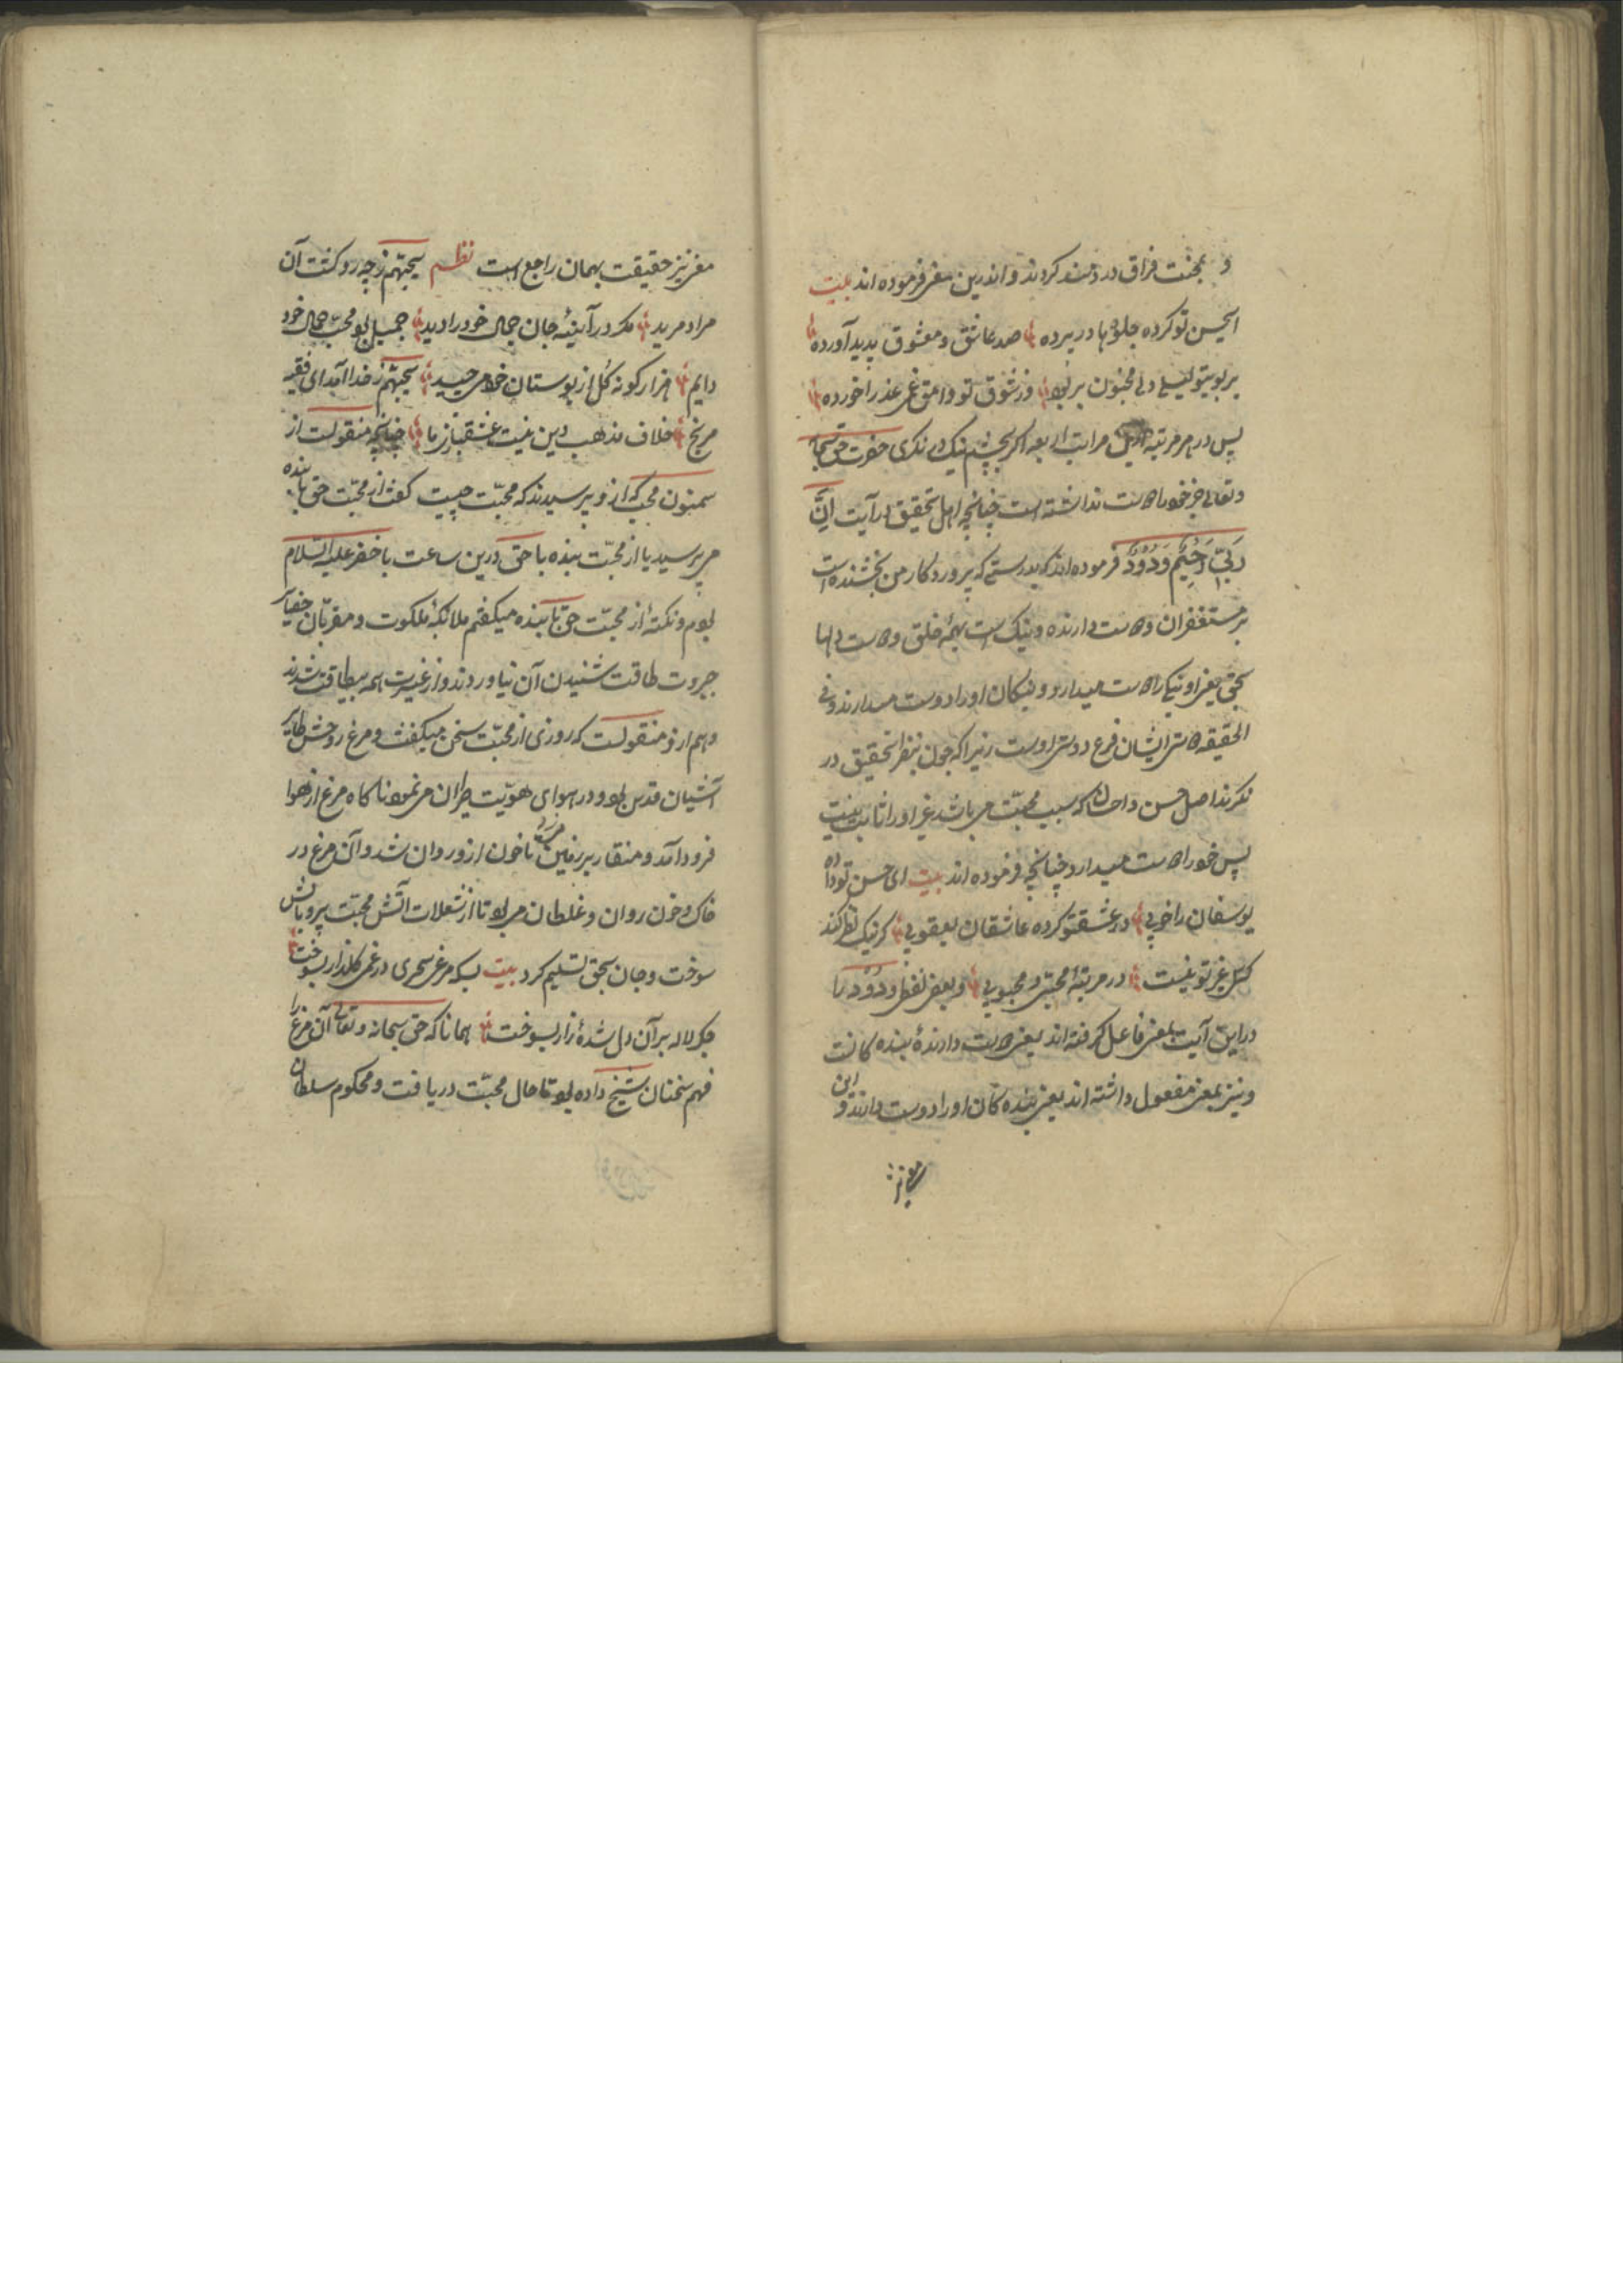 و بمحنت فراق دردمند کردند و اندرین معنی فرموده اند بیت
ای حسن تو کرده جلوها در پرده صد عاشق و معشوق پدید آورده
بر بوی تو لیلی دل مجنون برده وز شوق تو وامق غم عذرا خورده
پس در هر مرتبه از مراتب اربعه اگر بچشم نیک در نگری حضرت حق سبحانه
و تعالی جز خود را دوست نداشته است چنانچه اهل تحقیق در آیت اِنَّ
رَبّی رَحیمٌ وَدُودٌ فرموده اند که بدرستی که پروردگار من بخشنده است
بر مستغفران و دوست دارنده و نیک است بهمهٔ خلق و دوست دلها
بحق یعنی او نیکانرا دوست میدارد و نیکان او را دوست میدارند و فی
الحقیقه دوستی ایشان فرع دوستی اوست زیرا که چون بنظر تحقیق در
نگرند اصل حسن و احسان که سبب محبّت می باشد غیر او را ثابت نیست
پس خود را دوست میدارد چنانچه فرموده اند بیت ای حسن تو داده
یوسفان را خوبی در عشق تو کرده عاشقان یعقوبی گر نیک نظر کند
کسی غیر تو نیست در مرتبهٔ محبّی و محبوبی و بعضی لفظ ودود را
در این آیت بمعنی فاعل گرفته اند یعنی دوست دارندهٔ بنده کانست
و نیز بمعنی مفعول داشته اند یعنی بنده کان او را دوست دارند و این
معنی نیز
معنی نیز حقیقت بهمان راجع است نظم یحبّهم ز چه رو گشت آن
مراد مرید مگر در آینهٔ جان جمال خود را دید جمیل بود محبّ جمال خود
دایم هزار گونه گل از بوستان خود می چید یحبّهم ز خدا آمد ای فقیه
مرنج خلاف مذهب و دین نیست عشقبازی ما چنانچه منقولست از
سمنون محب که از و پرسیدند که محبّت چیست گفت از محبّت حق با بنده
می پرسید یا از محبّت بنده با حق درین ساعت با خضر علیه السلام
بودم و نکتهٔ از محبّت حق با بنده میگفتم ملائکهٔ ملکوت و مقربّان
جبروت طاقت شنیدن آن نیاوردند و از غیرت همه بیطاقت شدند
و هم از و منقولست که روزی از محبّت سخن میگفت و مرغ روحش طایر
آشیان قدس بود و در هوای هویّت طیران می نمود ناگاه مرغی از هوا
فرود آمد و منقار بر زمین می زد تا خون از و روان شد و آن مرغ در
خاک و خون روان و غلطان می بود تا از شعلات آتش محبّت پر و بالش
سوخت و جان بحق تسلیم کرد بیت بسکه مرغ سحری در غم گلزار بسوخت
جگر لاله بر آن دل شدهٔ زار بسوخت همانا که حق سبحانه و تعالی آن مرغ را
فهم سخنان شیخ داده بود تا حال محبّت دریافت و محکوم سلطان